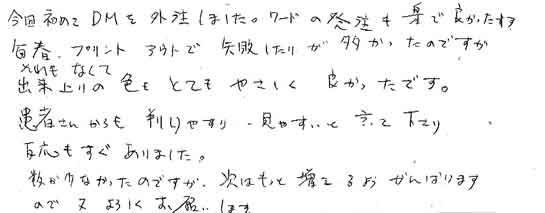 今回初めてDMを外注しました。ワードの発注も楽で良かったです
毎春、プリントアウトで失敗したりが多かったのですが
それもなくて
出来上りの色もとてもやさしく良かったです。
患者さんからも判りやすい、見やすいと言って下さり
反応もすぐありました。
数が少なかったのですが、次はもっと増えるようがんばります
ので又よろしくお願いします